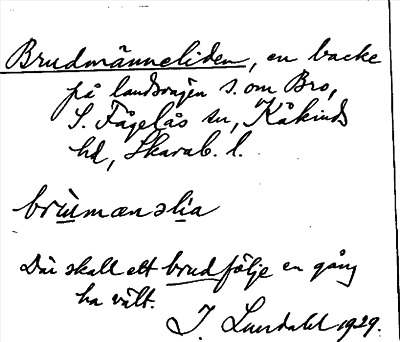 Brudmänneliden, en backe
på landsvägen s. om Bro,
S. Fågelås sn, Kåkinds
hd, Skarab. l.
brùmænslia
Där skall ett brudfölje en gång
ha vält.
J. Lundahl 1929.